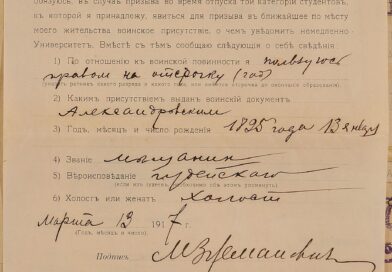 обязуюсь, въ случаѣ призыва во время отпуска той категоріи студентовъ,
къ которой я принадлежу, явиться для призыва въ ближайшее по мѣсту
моего жительства воинское присутствіе, о чемъ увѣдомить немедленно
Университетъ. Вмѣстѣ съ тѣмъ сообщаю слѣдующія о себѣ свѣдѣнія:
1) По отношенію къ воинской повинности я пользуюсь
правомъ на отсрочку (годъ)
2) Какимъ присутствіемъ выданъ воинскій документъ
Александровскимъ
3) Годъ, мѣсяцъ и число рожденія 1895 года 13 января
4) Званіе мѣщанинъ
5) Вѣроисповѣданіе іудейскаго
6) Холостъ или женатъ Холостъ
Марта 13 1917 г.
(Годъ, мѣсяцъ и число)
Подпись